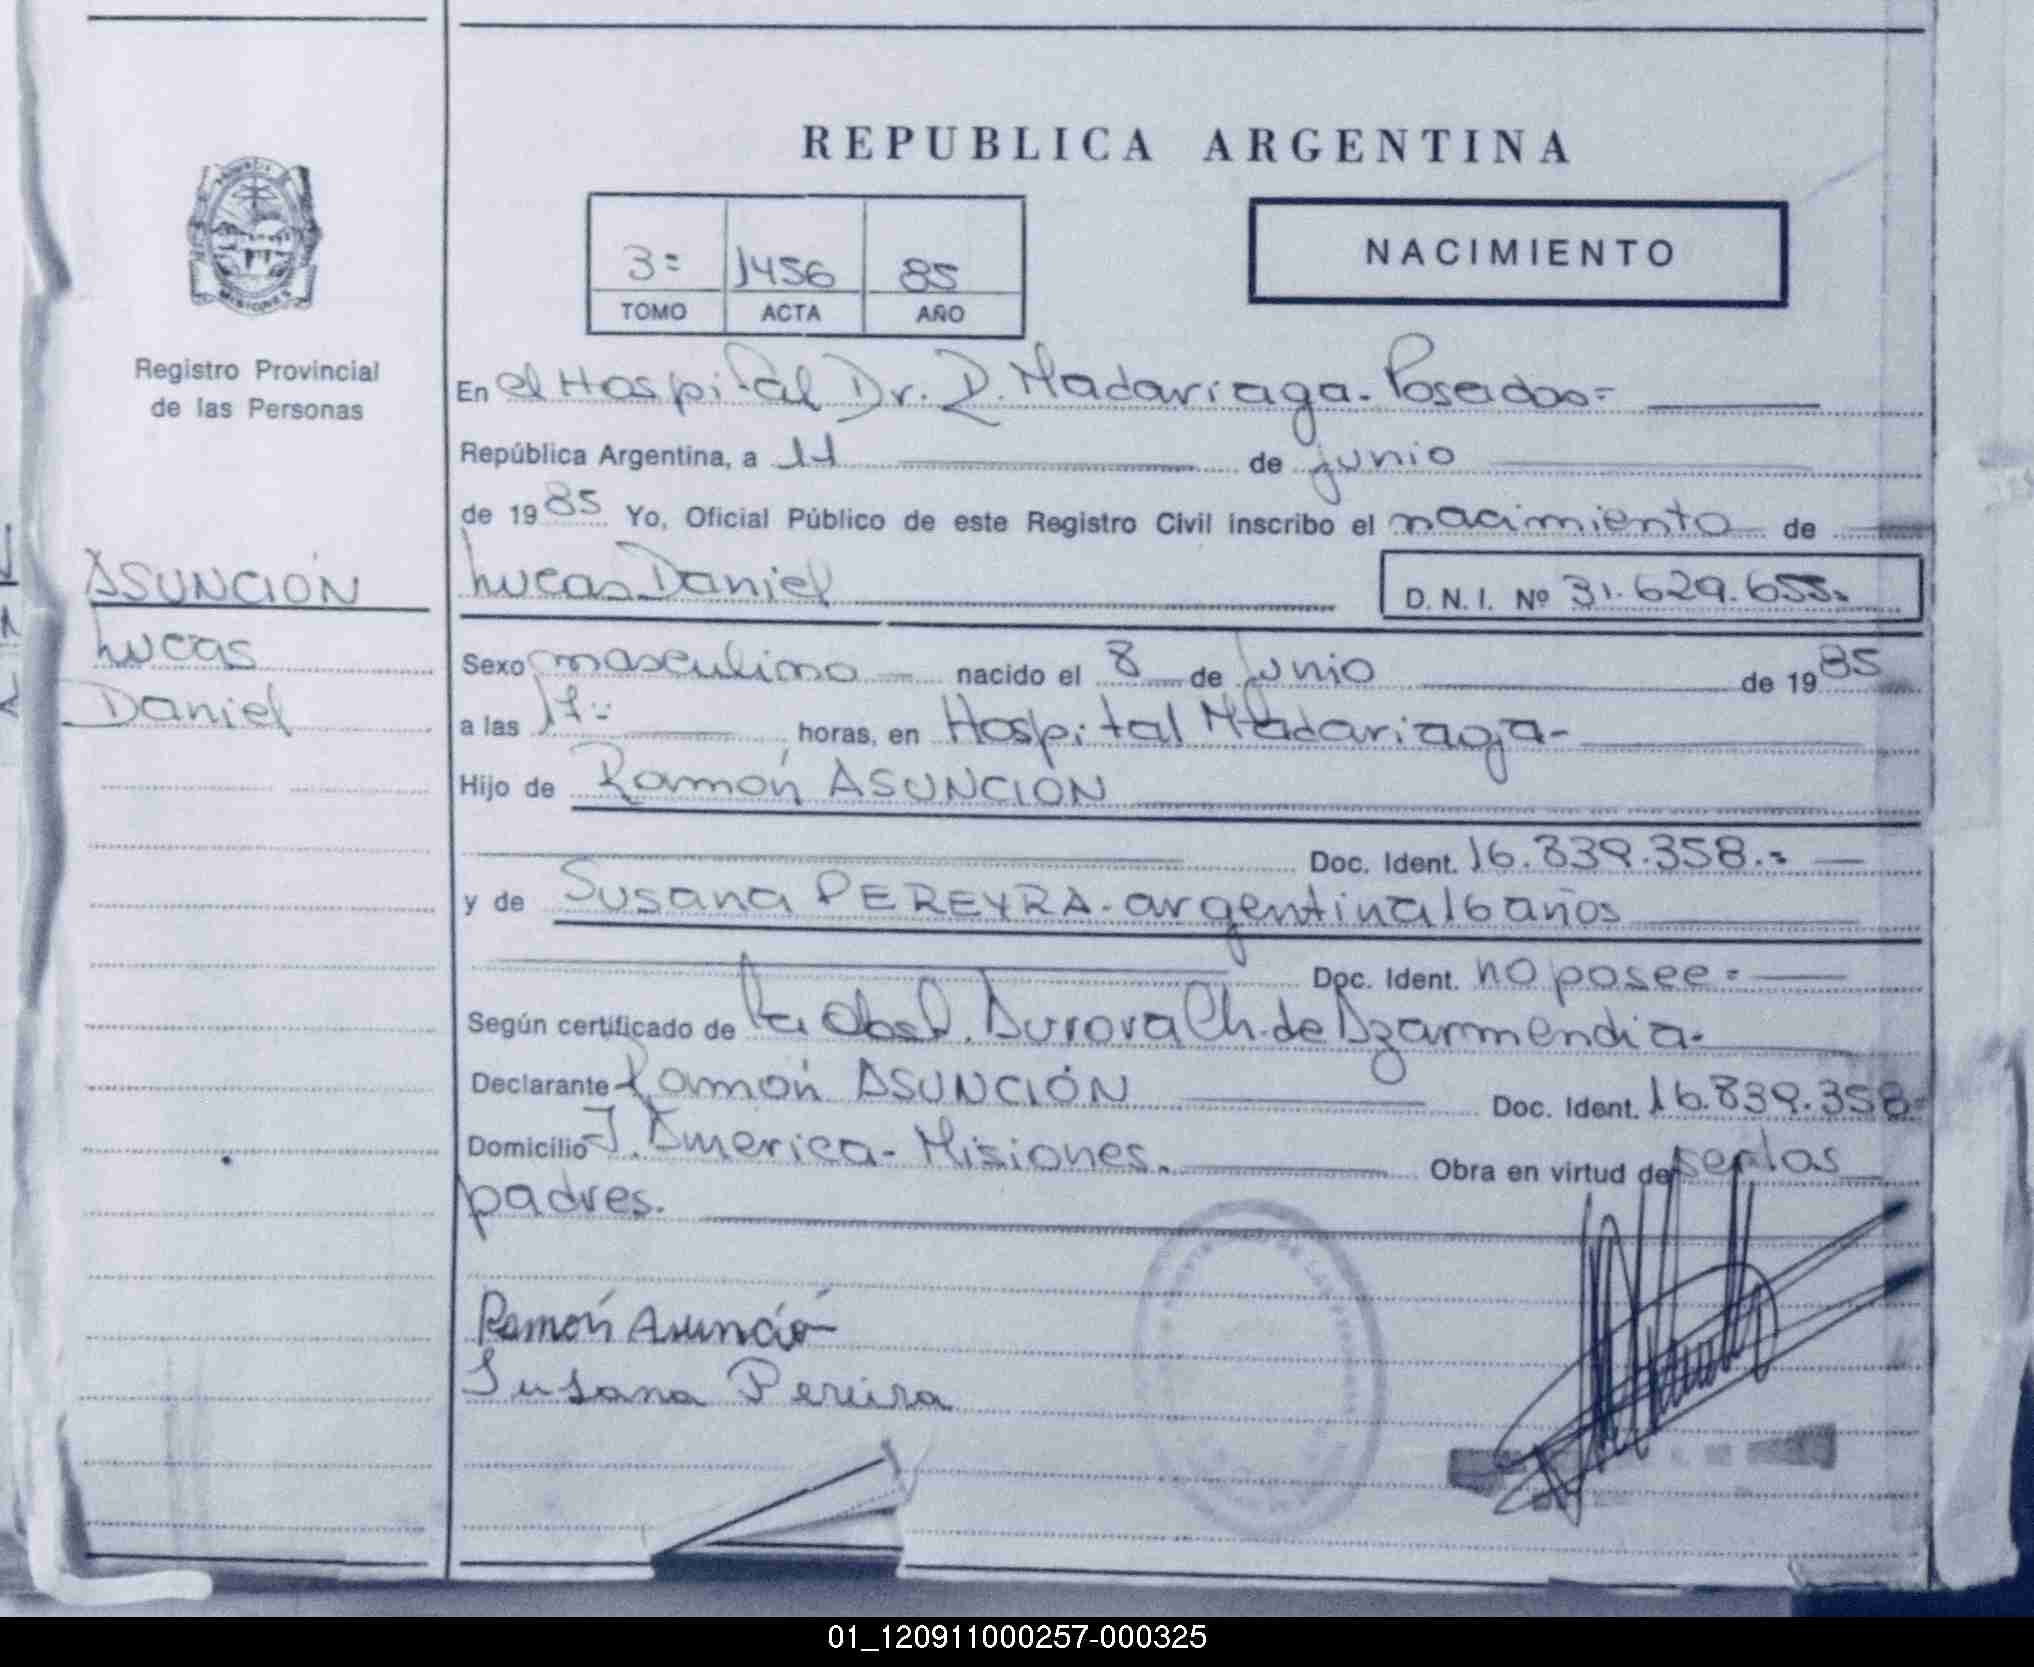 REPUBLICA ARGENTINA
MISIONES
Registro Provincial
de las Personas
3= 1456 85
TOMO ACTA AÑO
NACIMIENTO
En el Hospital Dr. R. Madariaga. Posadas=
República Argentina, a 11 de junio
de 1985 Yo, Oficial Público de este Registro Civil inscribo el nacimiento de
Lucas Daniel D. N. I. Nº 31.629.655.
ASUNCIÓN
Lucas
Daniel
Sexo masculino nacido el 8 de Junio de 1985
a las 17 horas, en Hospital Madariaga-
Hijo de Ramón ASUNCION
Doc. Ident. 16.839.358.=
y de Susana PEREYRA-argentina 16 años
Doc. Ident. no posee=
Según certificado de la Obst. Aurora Ch. de Azarmendia.
Declarante Ramón ASUNCIÓN Doc. Ident. 16.839.358=
Domicilio J. America- Misiones. Obra en virtud de ser los
padres.
Ramón Asunció
Susana Pereira
01_120911000257-000325